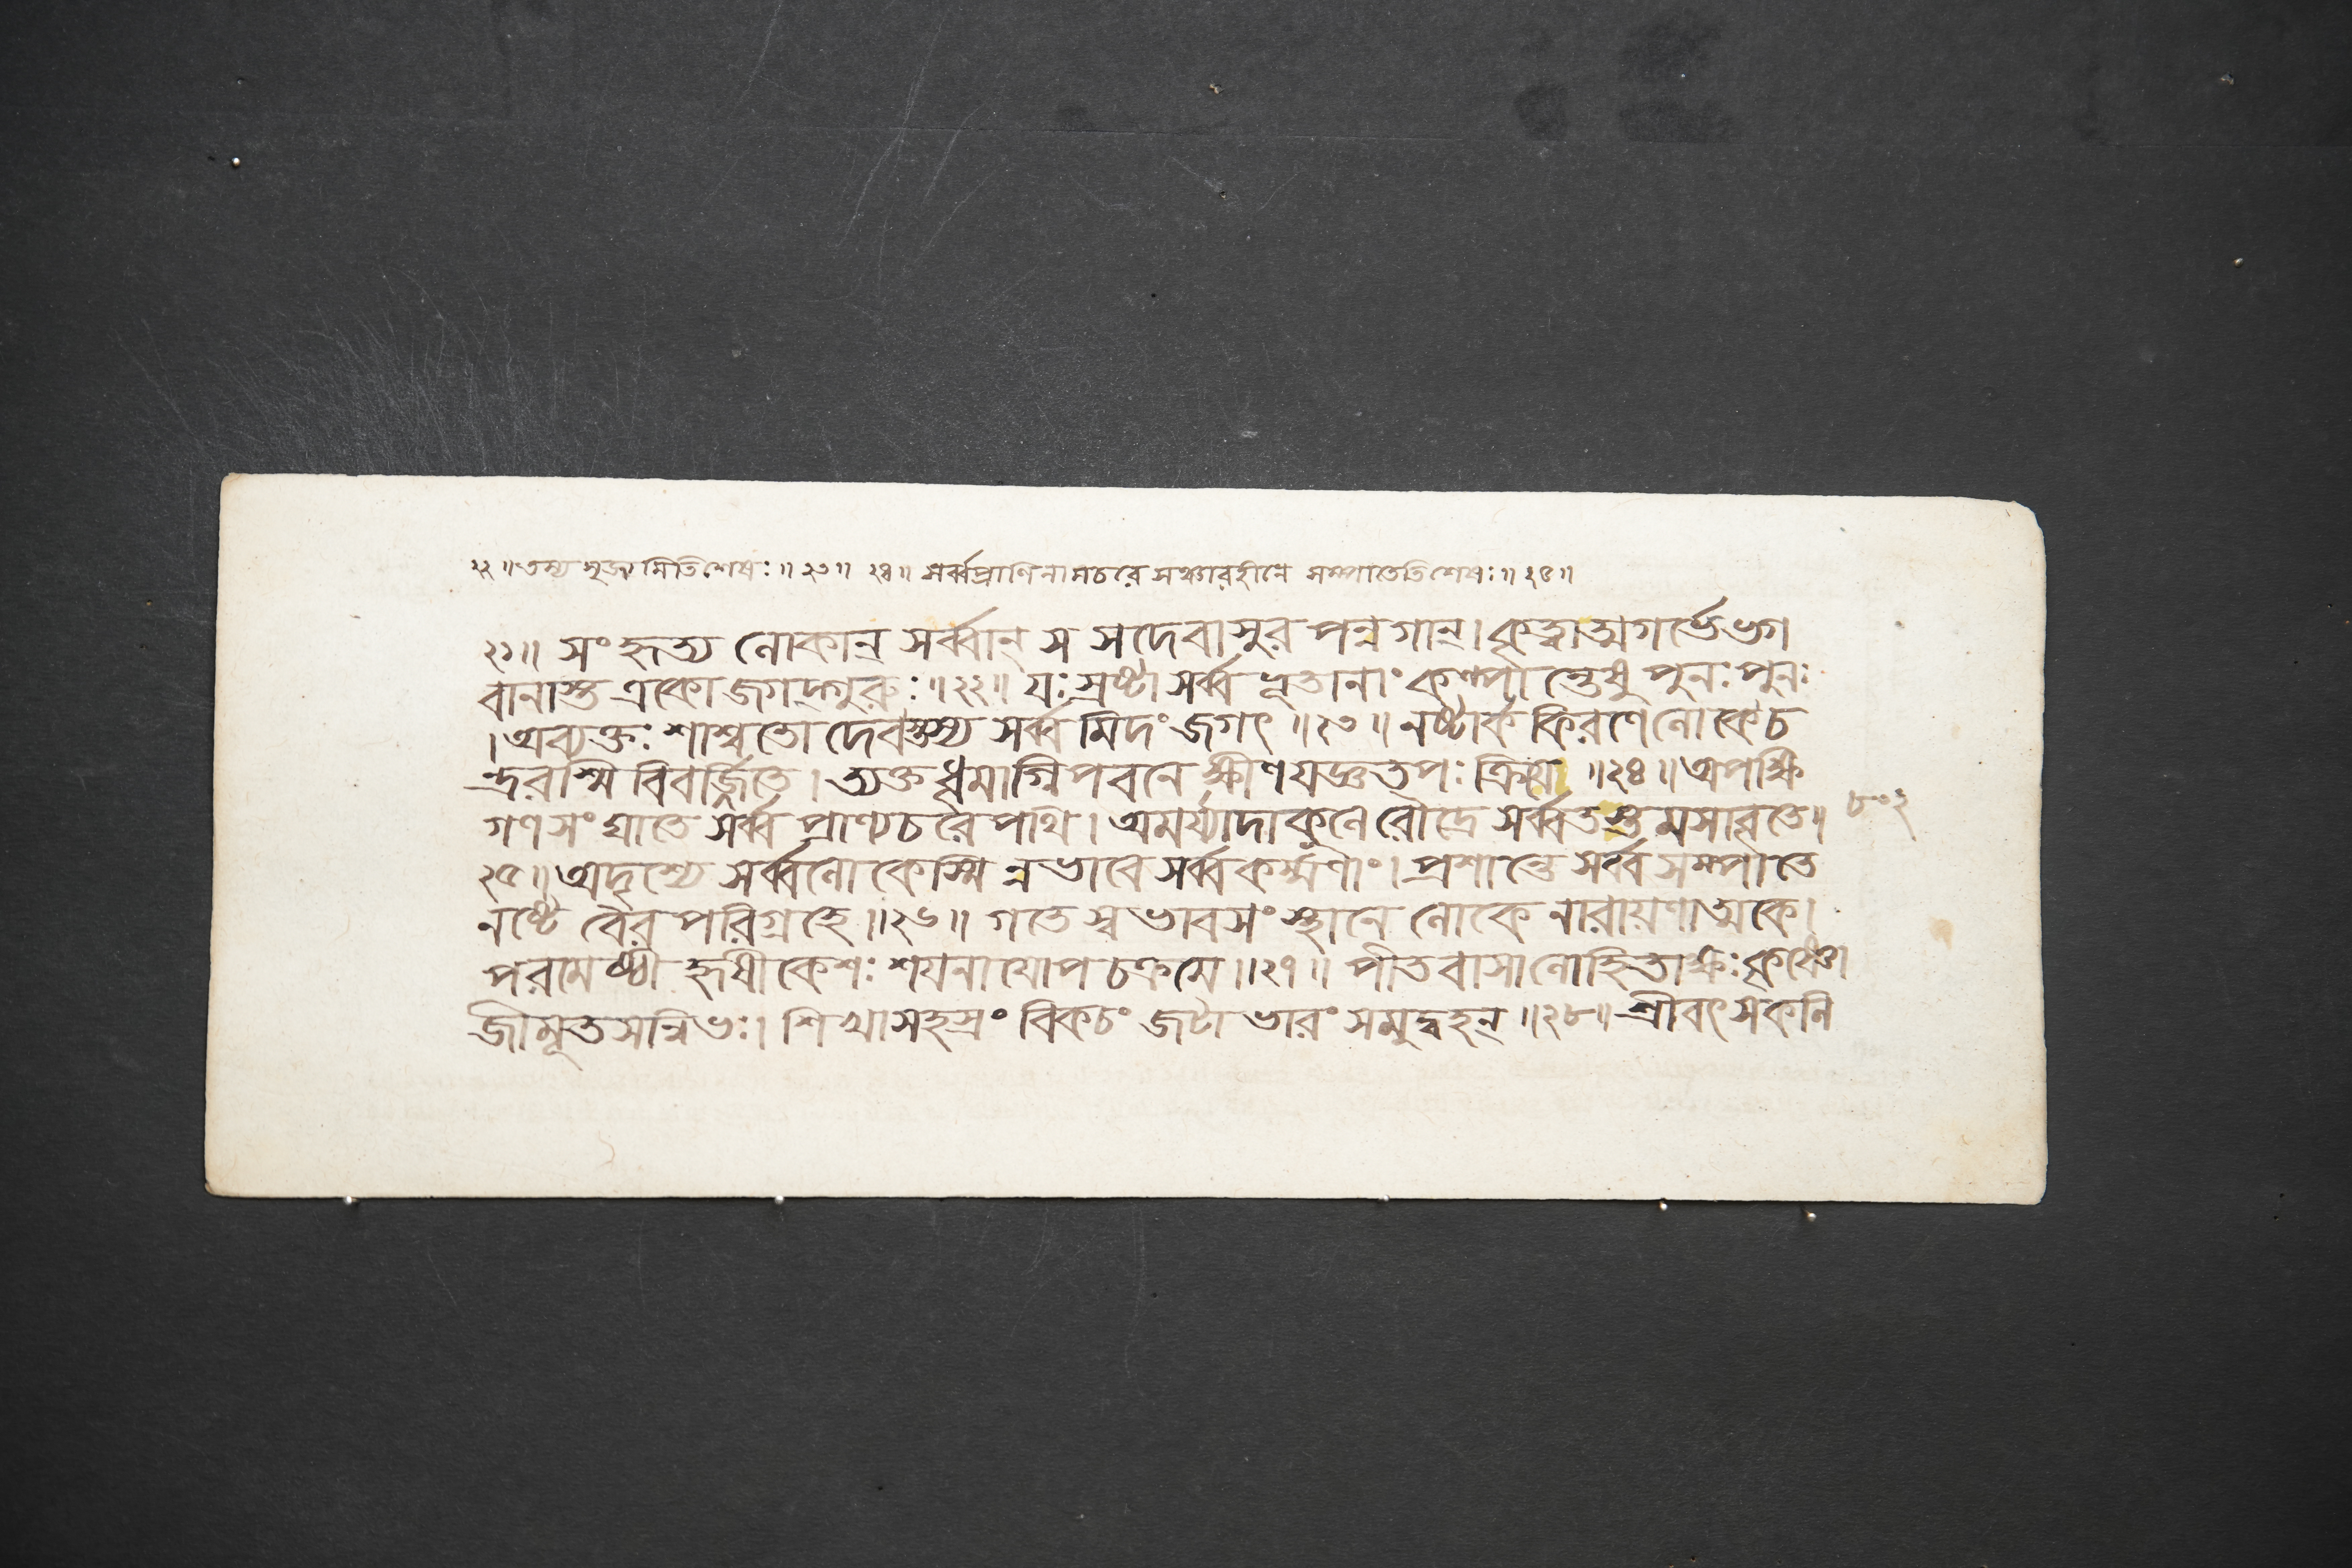 ২২॥ তস্য মুক্তা মিতিশেষঃ॥২৩॥ ২৪॥ সর্ব্বপ্রাণিনামচরে সঞ্চারহীনে সম্পাতেতিশেষঃ॥২৫॥
২১॥ সংহৃত্য লোকান্ সর্ব্বান্ স সদেবাসুর পন্নগান্। কৃত্বাত্মগর্ভেভগ
বানাস্ত একো জগদ্গুরুঃ॥২২॥ যঃস্রষ্টা সর্ব্ব ভূতানাং কল্পান্তেষু পুনঃ পুনঃ
। অব্যক্তঃ শাশ্বতো দেবস্তস্য সর্ব্ব মিদং জগৎ॥২৩॥ নষ্টার্ক কিরণেলোকেচ
ন্দ্ররশ্মি বিবর্জ্জিতে। ত্যক্তধূমাগ্নিপবনে ক্ষীণযজ্ঞতপঃ ক্রিয়ে॥২৪॥ অপক্ষি
গণ সংঘাতে সর্ব্ব প্রাণ্যচরে পথি। অমর্য্যাদাকুলে রৌদ্রে সর্ব্বতস্তমসাবৃতে॥
২৫॥ অদৃশ্যে সর্ব্বলোকেস্মি ন্নভাবে সর্ব্বকর্ম্মণাং। প্রশান্তে সর্ব্বসম্পাতে
নষ্টে বৈর পরিগ্রহে॥২৬॥ গতে স্বভাবসংস্থানে লোকে নারায়ণাত্মকে।
পরমেষ্ঠী হৃষীকেশঃ শয়নায়োপচক্রমে॥২৭॥ পীতবাসালোহিতাক্ষঃকৃষ্ণো
জীমূতসন্নিভঃ। শিখাসহস্রং বিকচং জটা ভারং সমুদ্বহন্॥২৮॥ শ্রীবৎসকলি
৮০২